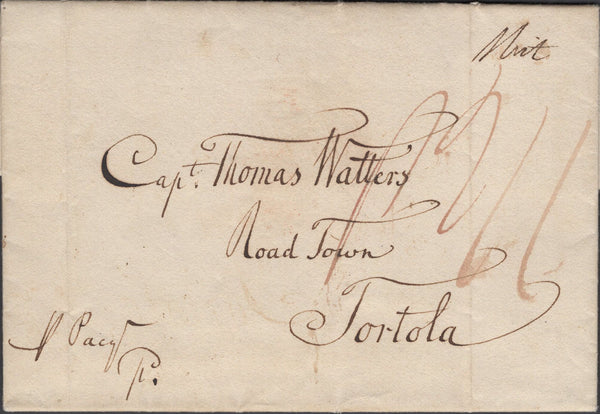 Capt. Thomas Watters
Road Town
Tortola
Pacqt
P.